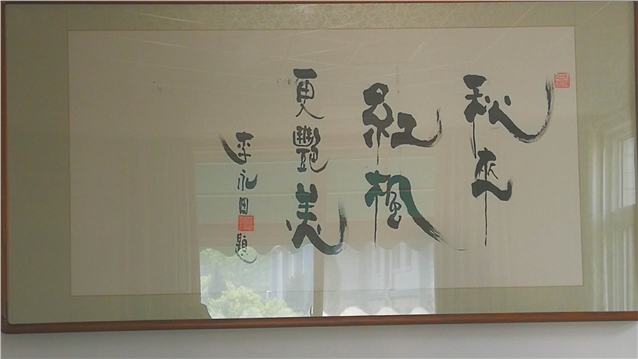 秋來
紅楓
更艷美
李永日題